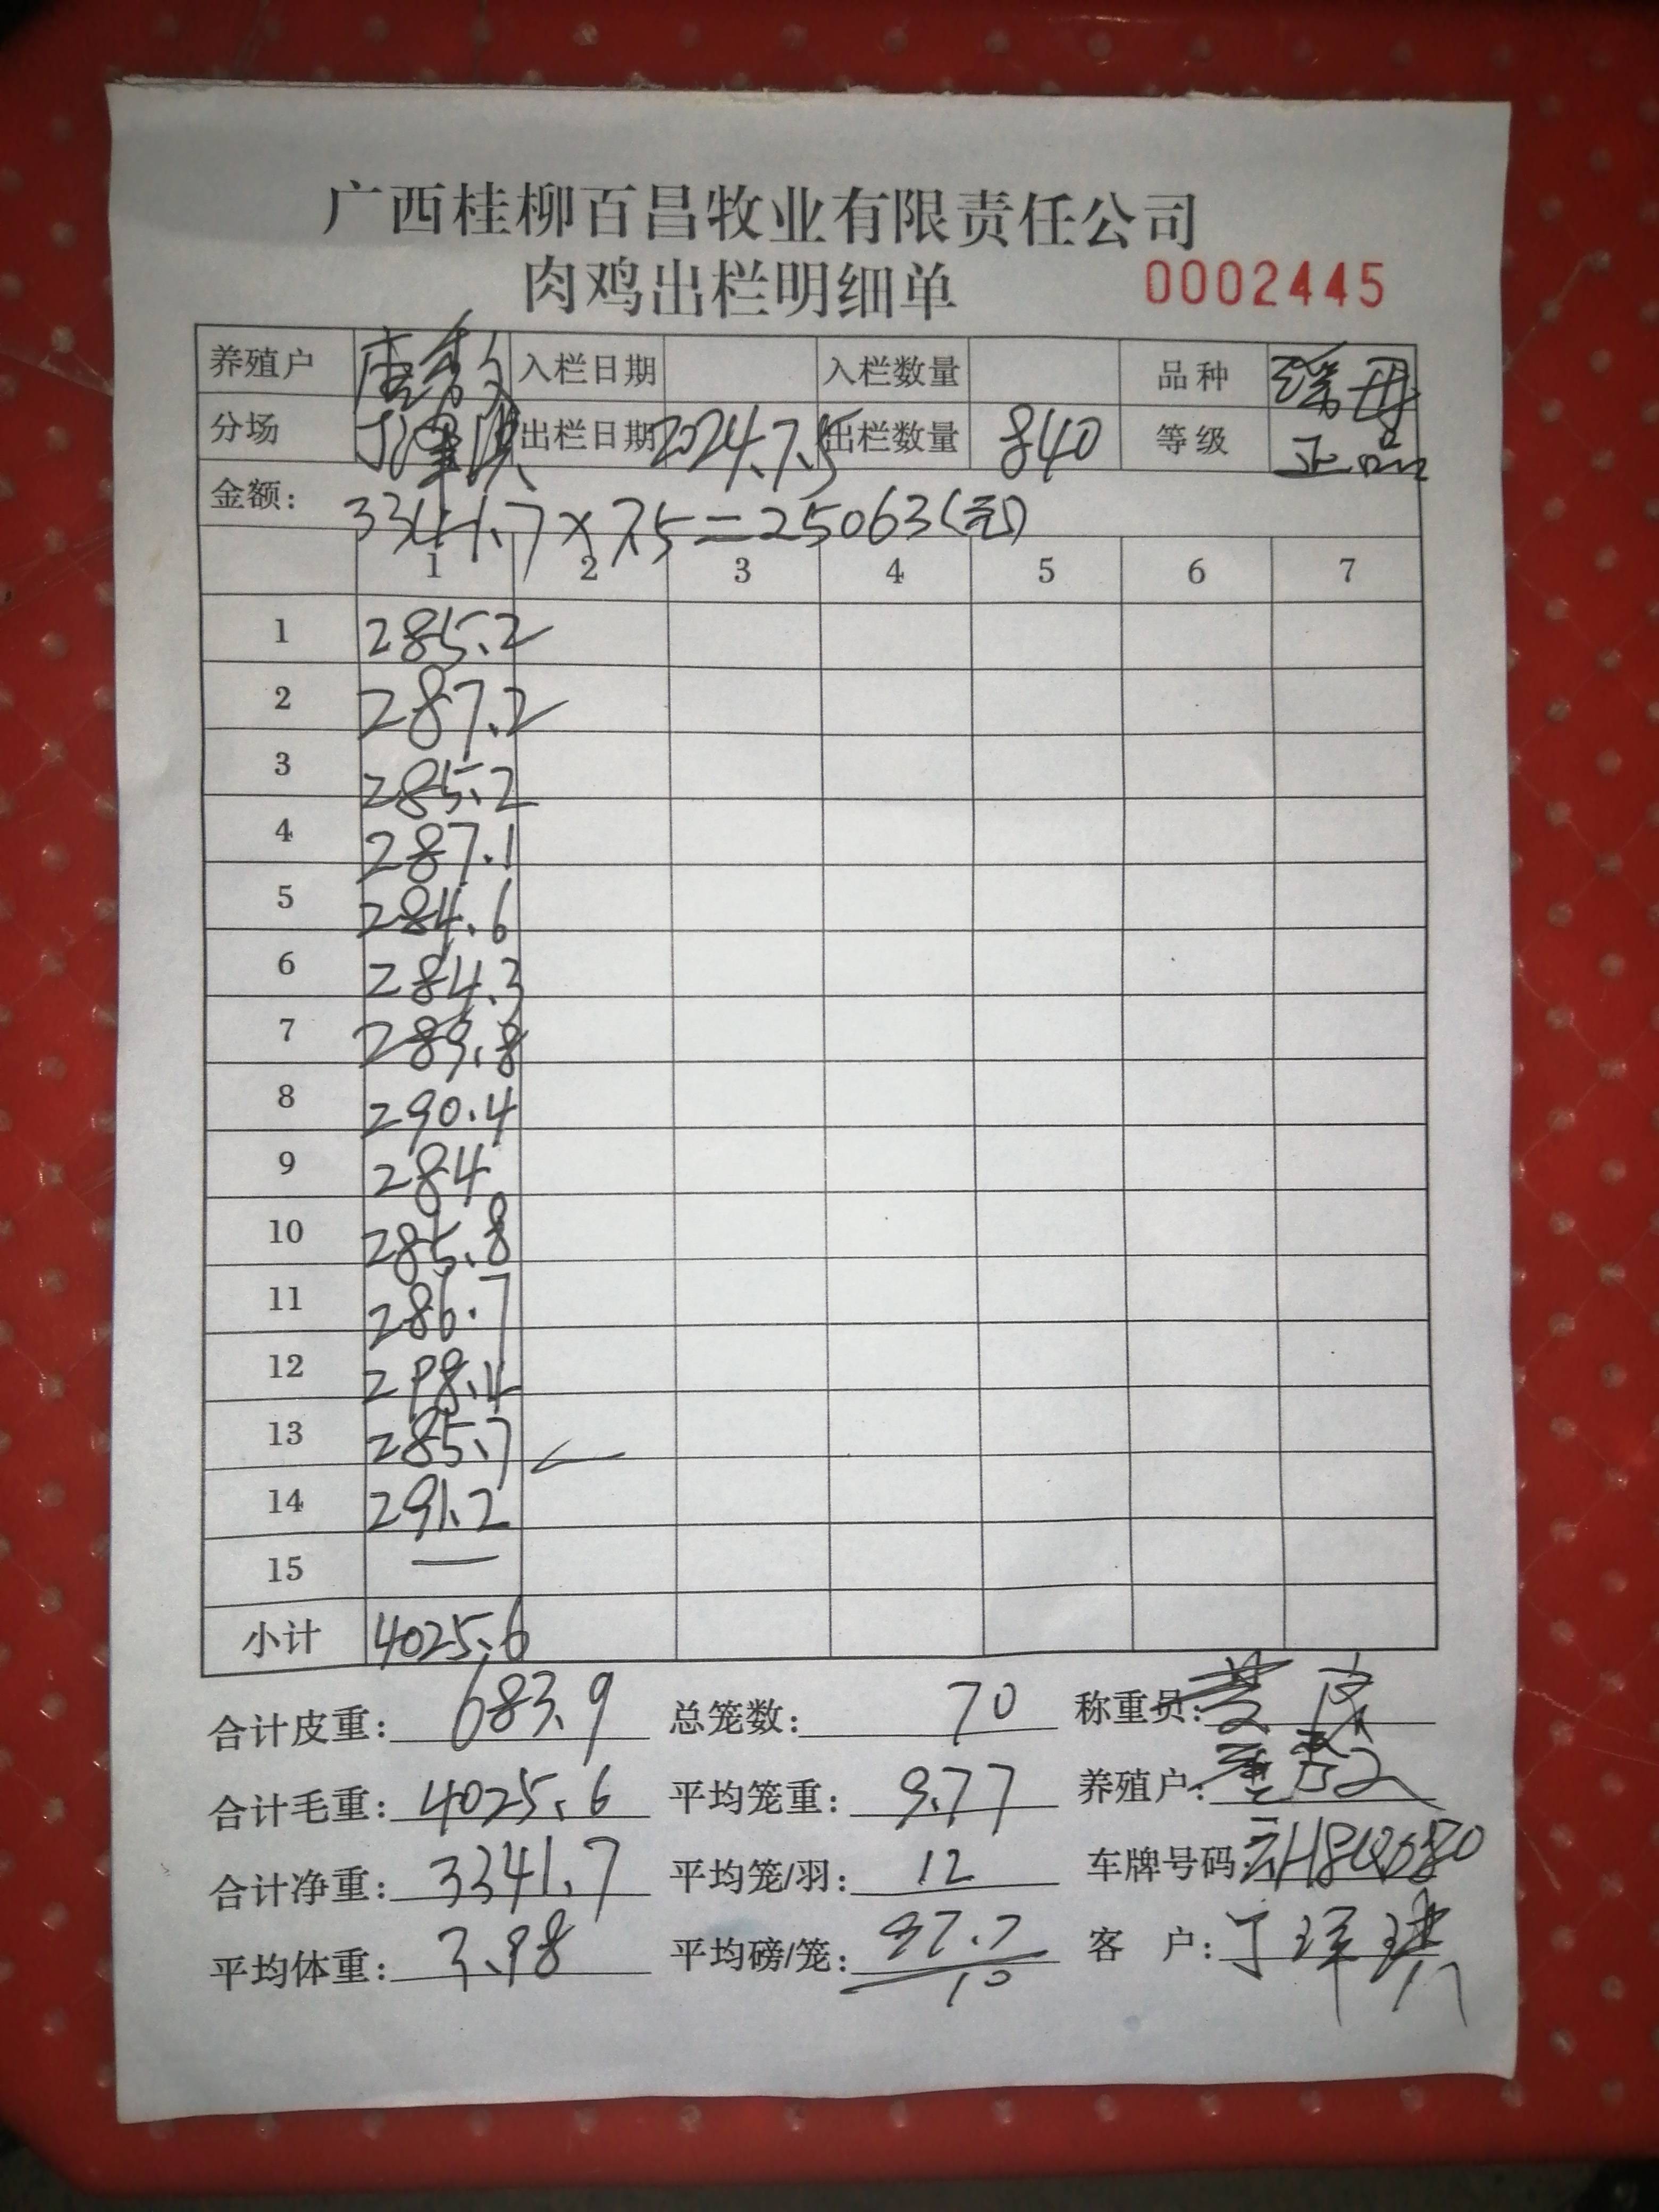 广西桂柳百昌牧业有限责任公司
肉鸡出栏明细单 0002445
养殖户 入栏日期 入栏数量 品种 瑶母
分场 出栏日期 2024.7.15 出栏数量 840 等级 正品
金额: 3341.7×7.5=25063(元)
1 2 3 4 5 6 7
1 285.2
2 287.2
3 285.2
4 287.1
5 284.6
6 284.3
7 289.8
8 290.4
9 284
10 285.8
11 286.7
12 298.4
13 285.7
14 291.2
15 —
小计 4025.6
合计皮重: 683.9 总笼数: 70 称重员:
合计毛重: 4025.6 平均笼重: 9.77 养殖户:
合计净重: 3341.7 平均笼/羽: 12 车牌号码:
平均体重: 3.98 平均磅/笼: 97.7/10 客 户: